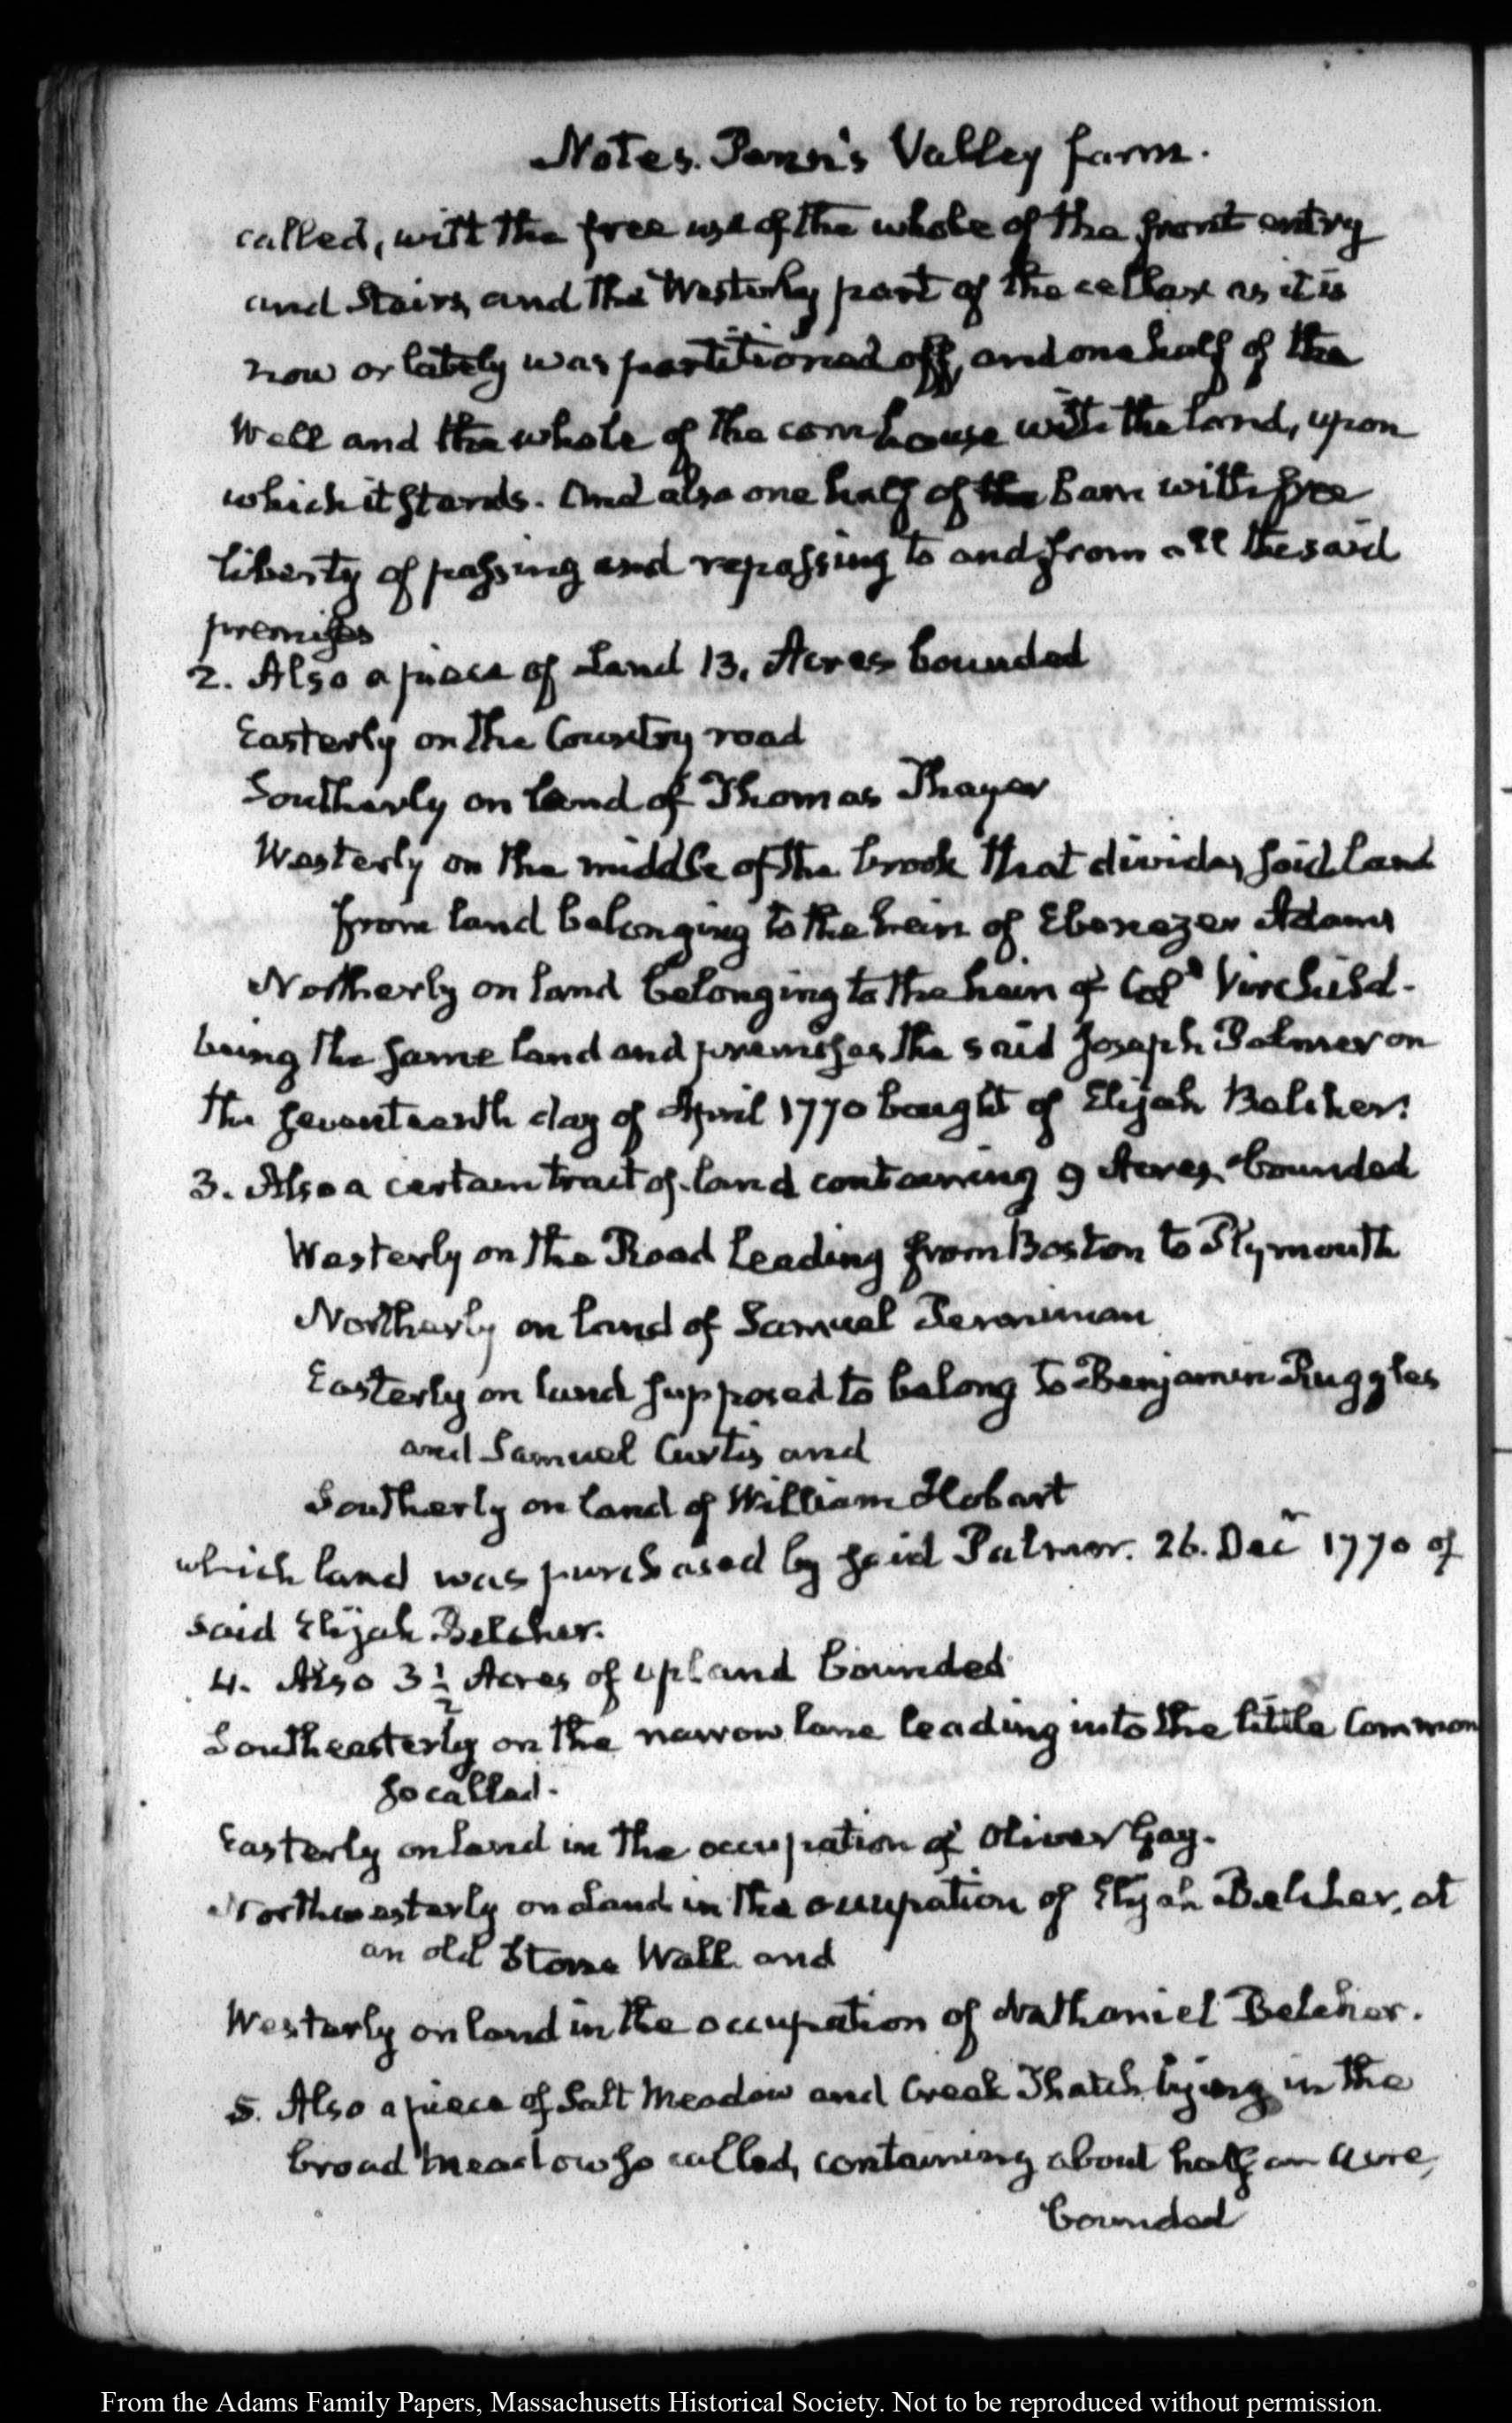 Notes. Penn's Valley farm.
called, with the free use of the whole of the front entry
and Stairs, and the Westerly part of the cellar as it is
now or lately was partitioned off, and one half of the
Well and the whole of the corn house with the land, upon
which it stands. And also one half of the Barn with free
liberty of passing and repassing to and from all the said
premises
2. Also a piece of Land 13. Acres bounded
Easterly on the Country road
Southerly on land of Thomas Thayer
Westerly on the middle of the brook that divides said land
from land belonging to the heirs of Ebenezer Adams
Northerly on land belonging to the heirs of Colo Virchild.
being the same land and premises the said Joseph Palmer on
the seventeenth day of April 1770 bought of Elijah Belcher.
3. Also a certain tract of land containing 9 Acres bounded
Westerly on the Road leading from Boston to Plymouth
Northerly on land of Samuel
Easterly on land supposed to belong to Benjamin Ruggles
and Samuel Curtis and
Southerly on land of William Hobart
which land was purchased by said Palmer. 26. Decr 1770 of
said Elijah Belcher.
4. Also 3 1/2 Acres of upland bounded
Southeasterly on the narrow lane leading into the little Common
so called.
Easterly on land in the occupation of Oliver Gay.
Northwesterly on Land in the occupation of Elijah Belcher, at
an old Stone Wall and
Westerly on land in the occupation of Nathaniel Belcher.
5. Also a piece of Salt Meadow and Creek Thatch lying in the
broad Meadow so called, containing about half an Acre,
bounded
From the Adams Family Papers, Massachusetts Historical Society. Not to be reproduced without permission.